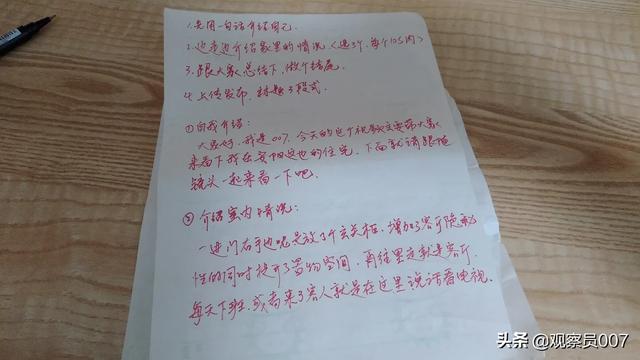 1.先用一句话介绍自己.
2.边走边介绍家里的情况(选3个,每个10S内)
3.跟大家总结下,做个结尾.
4.上传发布,标题3段式.
①自我介绍:
大家好,我是007,今天的这个视频主要带大家
来看下我在这边的住宅,下面就请跟随
镜头一起来看一下吧.
② 介绍室内情况:
一进门右手边呢是放了个玄关柜,增加了客厅隐私
性的同时提升了置物空间,再往里走就是客厅,
每天下班,或者来了客人就是在这里说话看电视.
头条 @观察员007